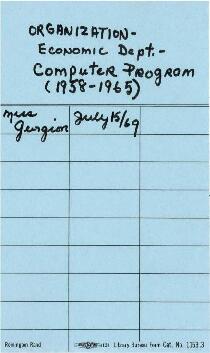 ORGANIZATION-
ECONOMIC Dept.-
COMPUTER PROGRAM
(1958-1965)
Miss July 15/69
Gurgion
Remington Rand Library Bureau Form Cat. No. 1153.3